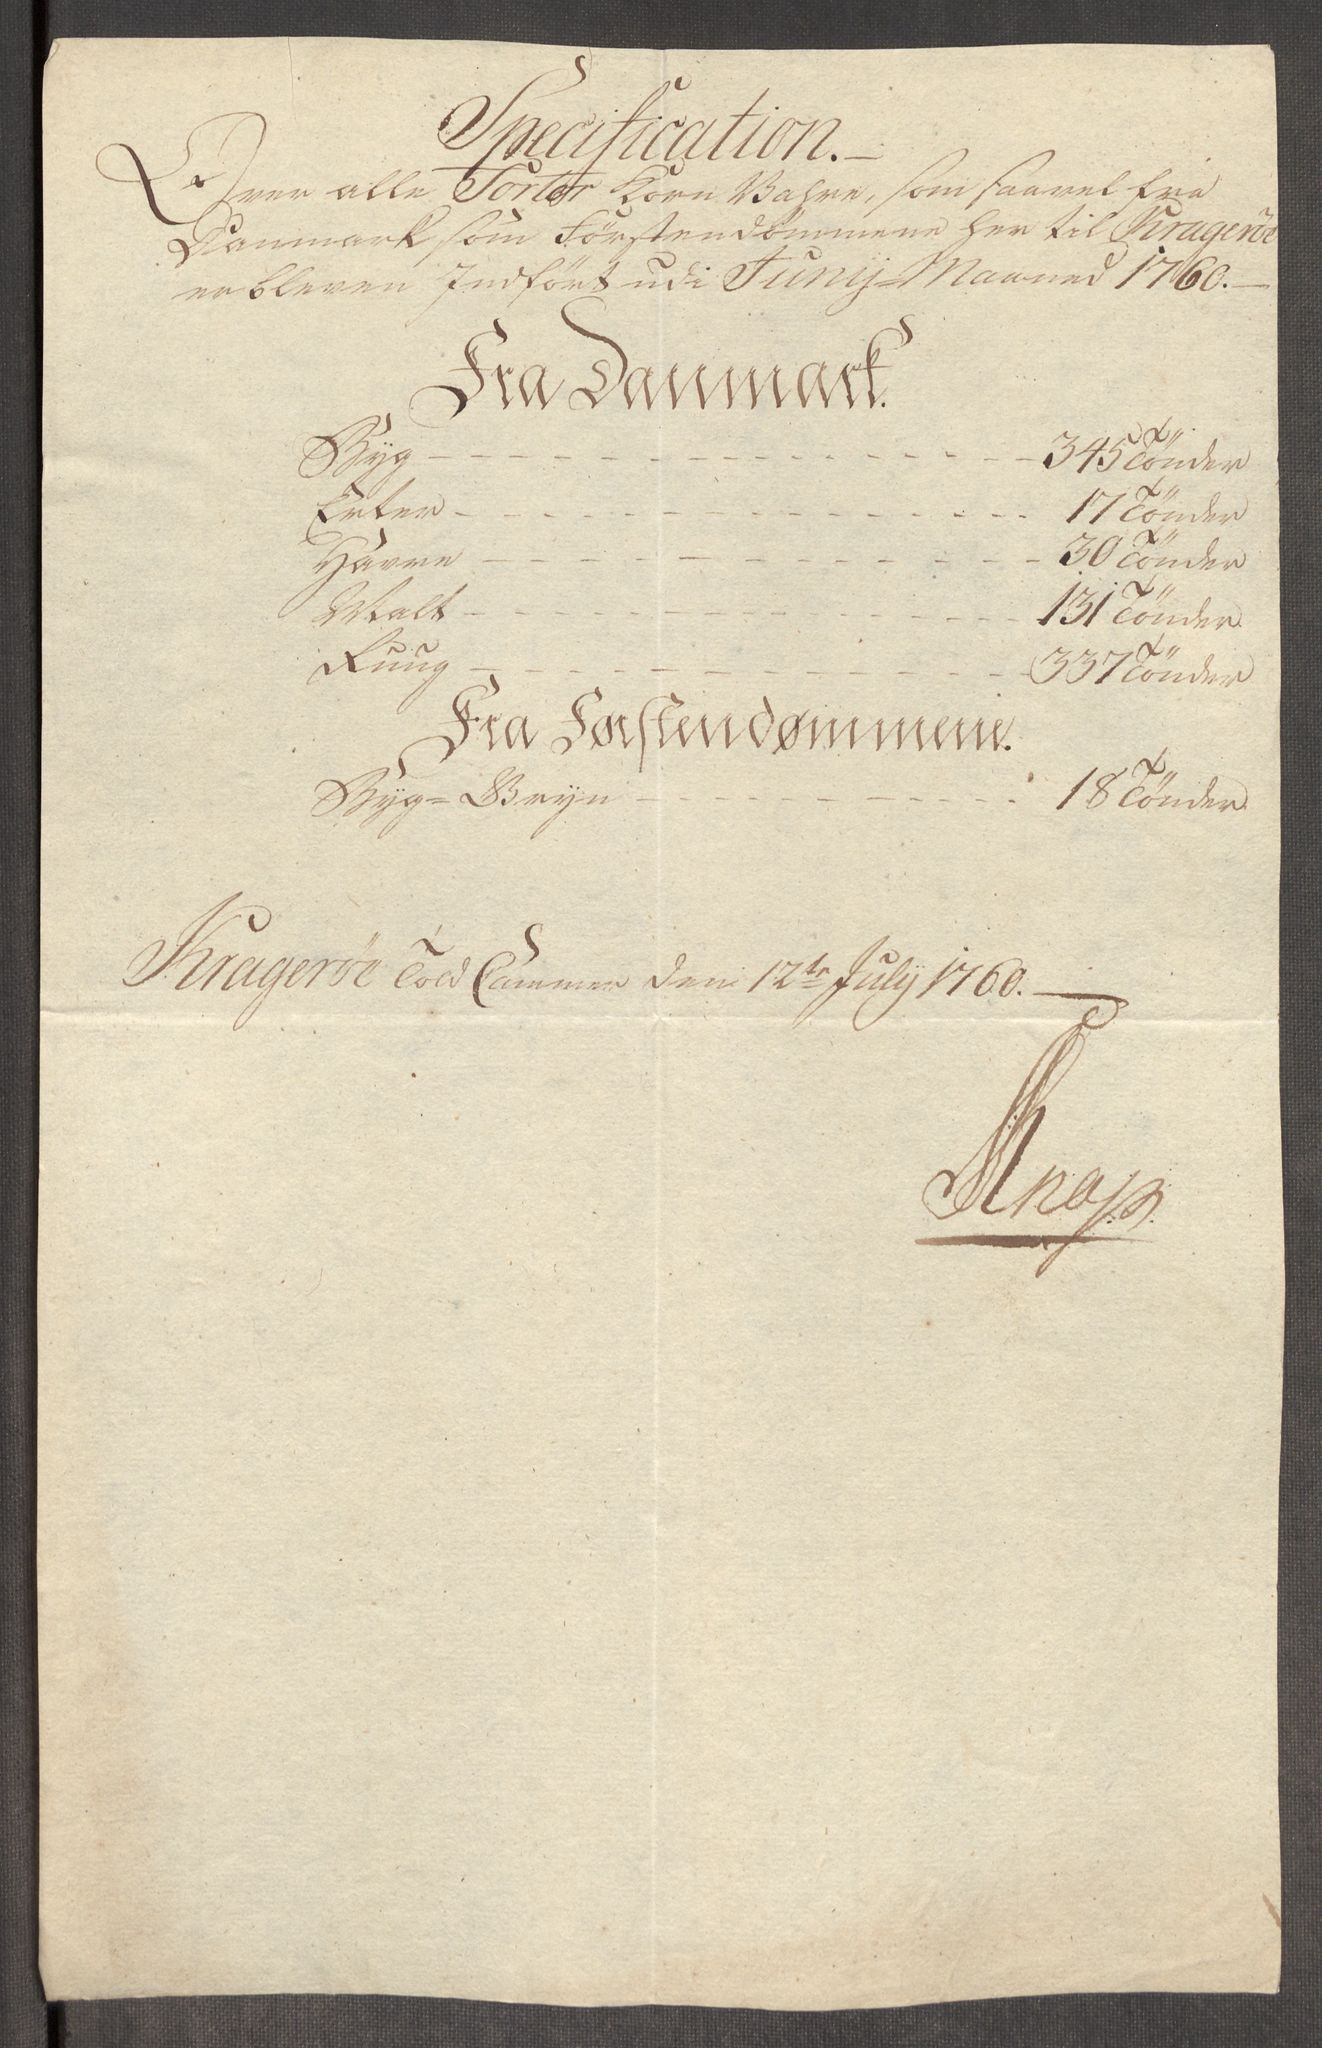 Specification.
Over alle Sorter Korn Vahre, som saavel fra
Danmark som Förstendömmene her til Krageröe
er bleven Indfört udi Junij Maaned 1760.
Fra Danmark.
Byg - - - 345 Tönder
Erter - - - 17 Tönder
Havre - - - 30 Tönder
Malt - - - 131 Tönder
Ruug - - - 337 Tönder
Fra Førstendømmene.
Byg=Gryn - - - 18 Tönder
Krageröe Told Cammer den 12te July 1760.
Knap